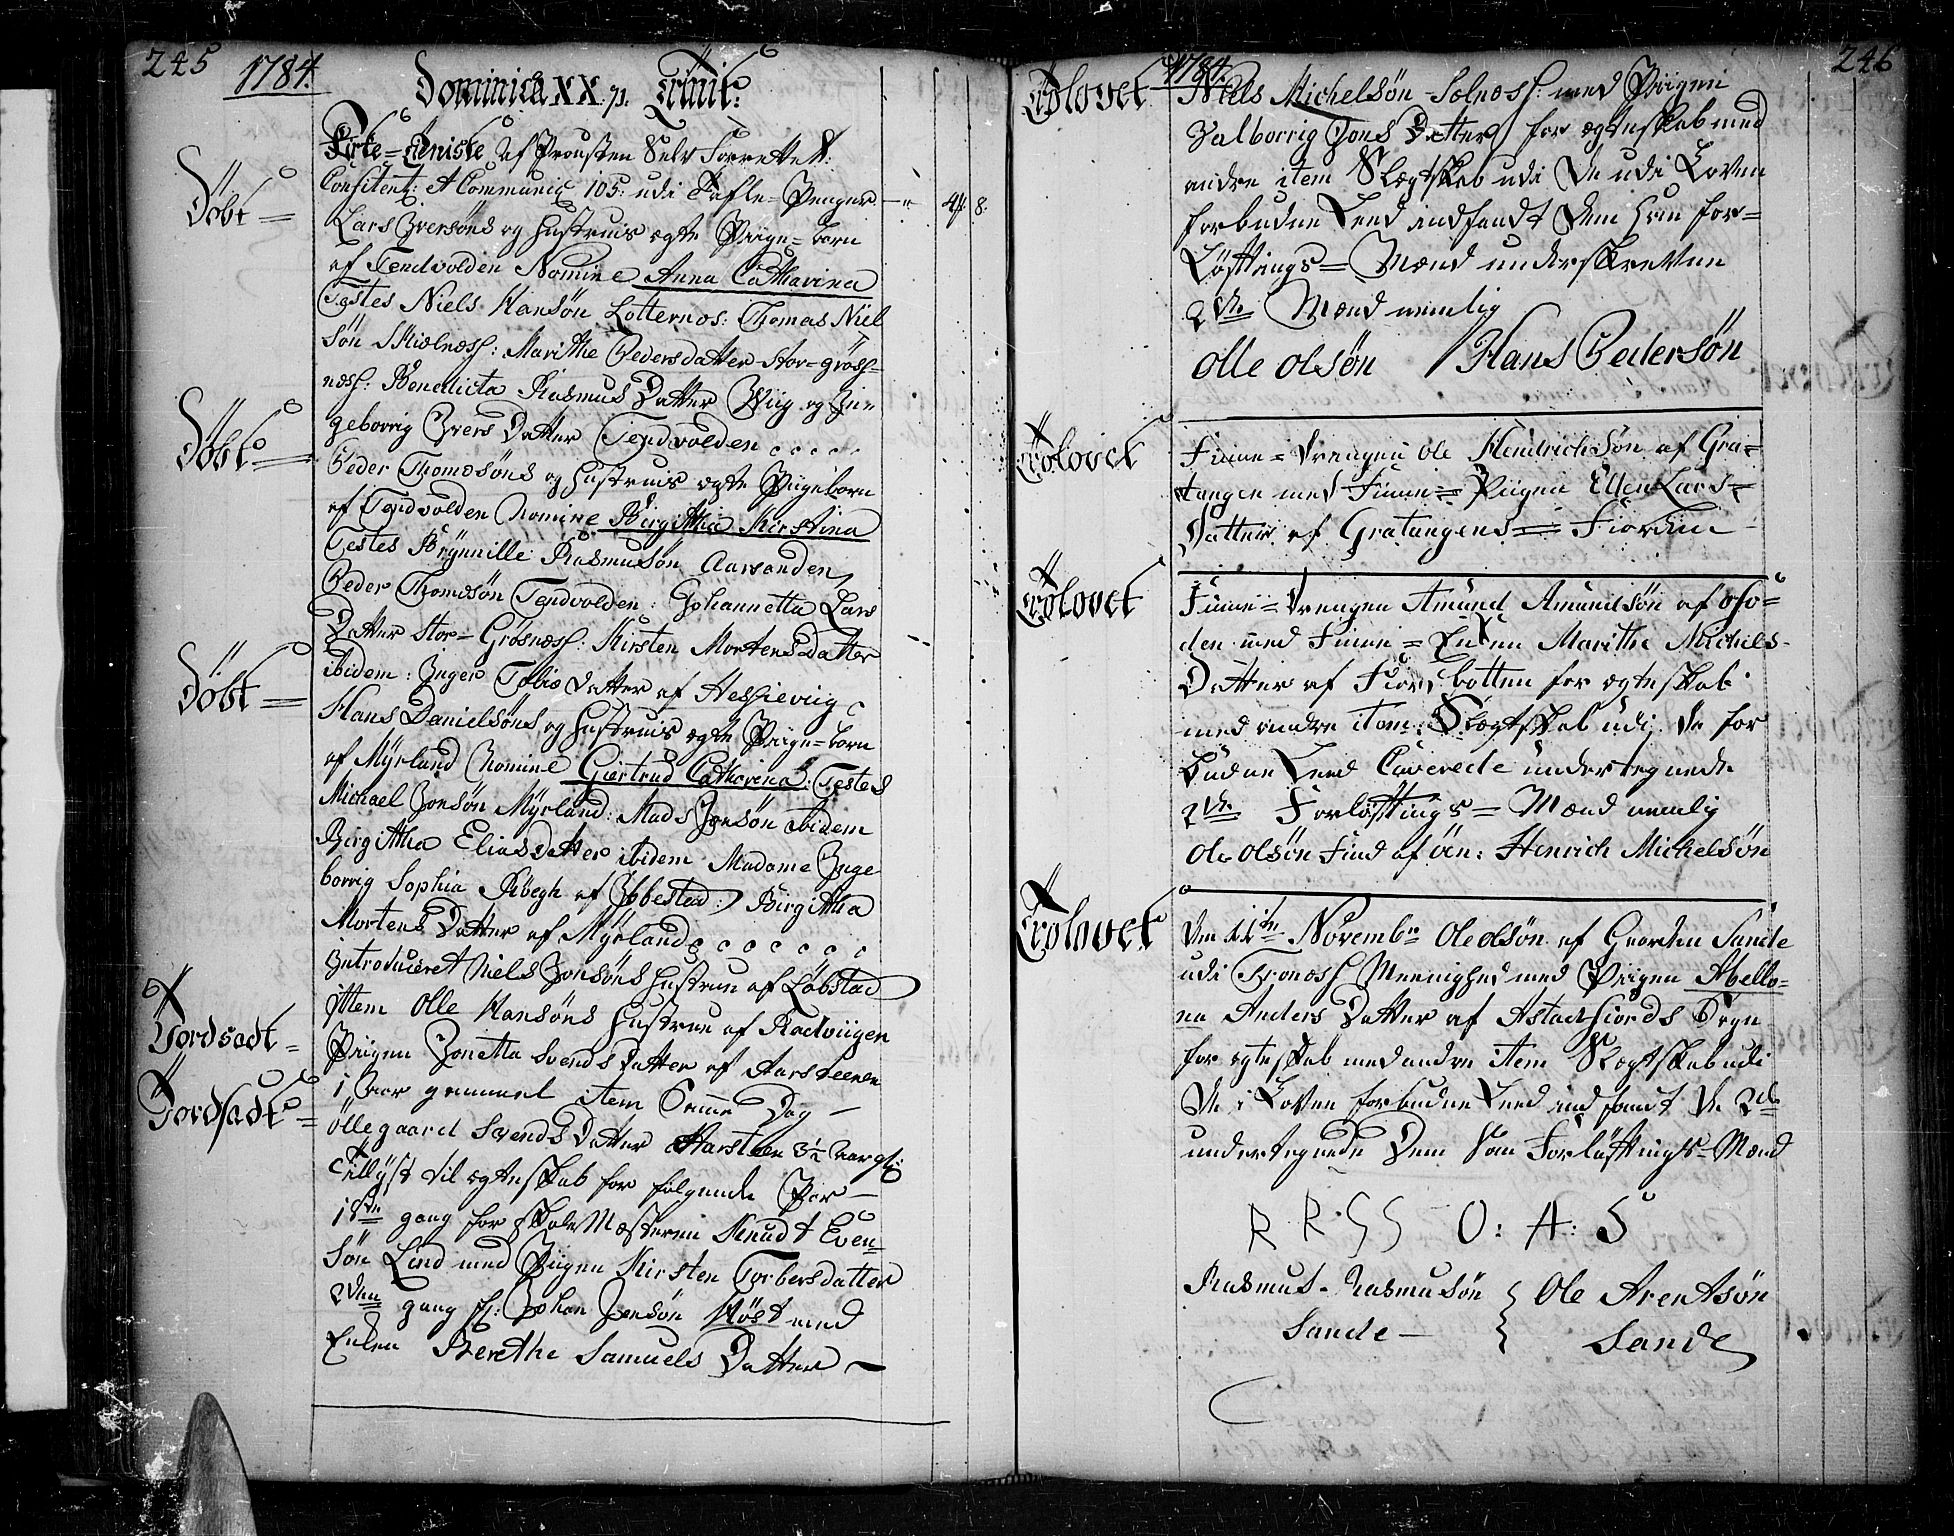 245
1784.
Dominica XX p. Trinit:
Kirke-Tieniste af Prousten Selv Forrettet:
Confitent: et Communic 105: udi Tafle-Penger 4 # 8.
Döbt = Lars Iversöns og Hustrues ægte Piige-barn
af Tendvolden Nomine Anna Catharina
Testes Niels Hansön Lotternes: Thomas Niel
sön Skielness: Marithe Pedersdatter Stor-gröss-
ness: Benedicta Rasmus Datter Wiig og In
geborrig Ivers Datter Tendvolden
Döbt = Peder Thomesöns og Hustrues ægte Piigebarn
af Tendvolden Nomine Birgitha Kirstina
Testes Brÿnnille Rasmusön Aarsanden
Peder Thomsön Tendvolden: Johannetta Lars
Datter Stor-Grösness: Kirsten Mortensdatter
ibidem: Inger Tobias Datter af Hessieviig
Döbt = Hans Danielsöns og Hustrues ægte Piige-barn
af Mÿrland Nomine Giertrud Catharina: Testes
Michael Jonsön Mÿrland: Mads Jonsön ibidem
Birgitha Eliasdatter ibidem Madame Inge
borrig Sophia Kibegh af Ibbestad: Birgitha
Mortens Datter af Mÿrland
Introduceret Niels Jonsöns Hustrue af Löbstad
Ittem Olle Hansöns Hustrue af Radviigen
Jordsadt = Piigen Jonetta Svends Datter af Aarsteenen
1 Aar gammel item Samme Dag
Jordsadt = Ollegaard Svends Datter Aarsteen 3½ Aar gl:
Tillÿst til ægteskab for følgende Par
1ste gang for SkoleMesteren Knudt Even-
sön Lind med Piigen Kirsten Torbersdatter
2den gang for: Johan Jensön Höst med
Enken Berethe Samuels Datter
246
1784
Trolovet Niels Michelsön Solness: med Piigen
Valborrig Jons Datter for ægteskab med
andre item Slegtskab udi De udi Loven
forbudne Leed indfandt dem som for-
Löftnings-Mænd underskrevne
2de Mænd nemlig
Olle Olsön Hans Pedersön
Trolovet Finne-Drengen Ole Hendrichsön af Gra-
tangen med Finne-Piigen Ellen Lars-
Datter af Gratangens-Fiorden
Trolovet Finne-Drengen Amund Amundsön af
den med Finne-Enken Marithe Michels-
Datter af Fiordbotten for ægteskab
med andre item: Slegtskab udi de for
budne Leed Caverede undertegnede
2de Forlöftnings-Mænd nemlig
Ole Olsön Find af öen: Henrich Michelsön
Trolovet Den 11te Novembr Ole Olsön af Gaarden Sande
udi Tronæss Meenighed med Piigen Abello-
na Anders Datter af Astadfiords Sogn
for ægteskab med andre item Slegtskab udi
De i Loven forbudne Leed indfandt De 2de
undertegnede Dem som Forlöftnings-Mænd
R R S S O: A: S
Rasmus Rasmusön Ole Arentsön
Sande Sande